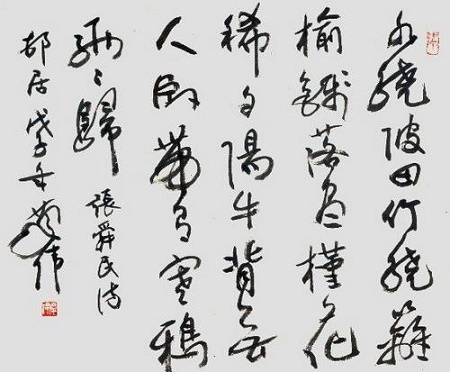 水繞陂田竹繞籬
榆錢落盡槿花
稀夕陽牛背無
人卧帶得寒鴉
兩々歸 張舜民詩
邨居 戊子年